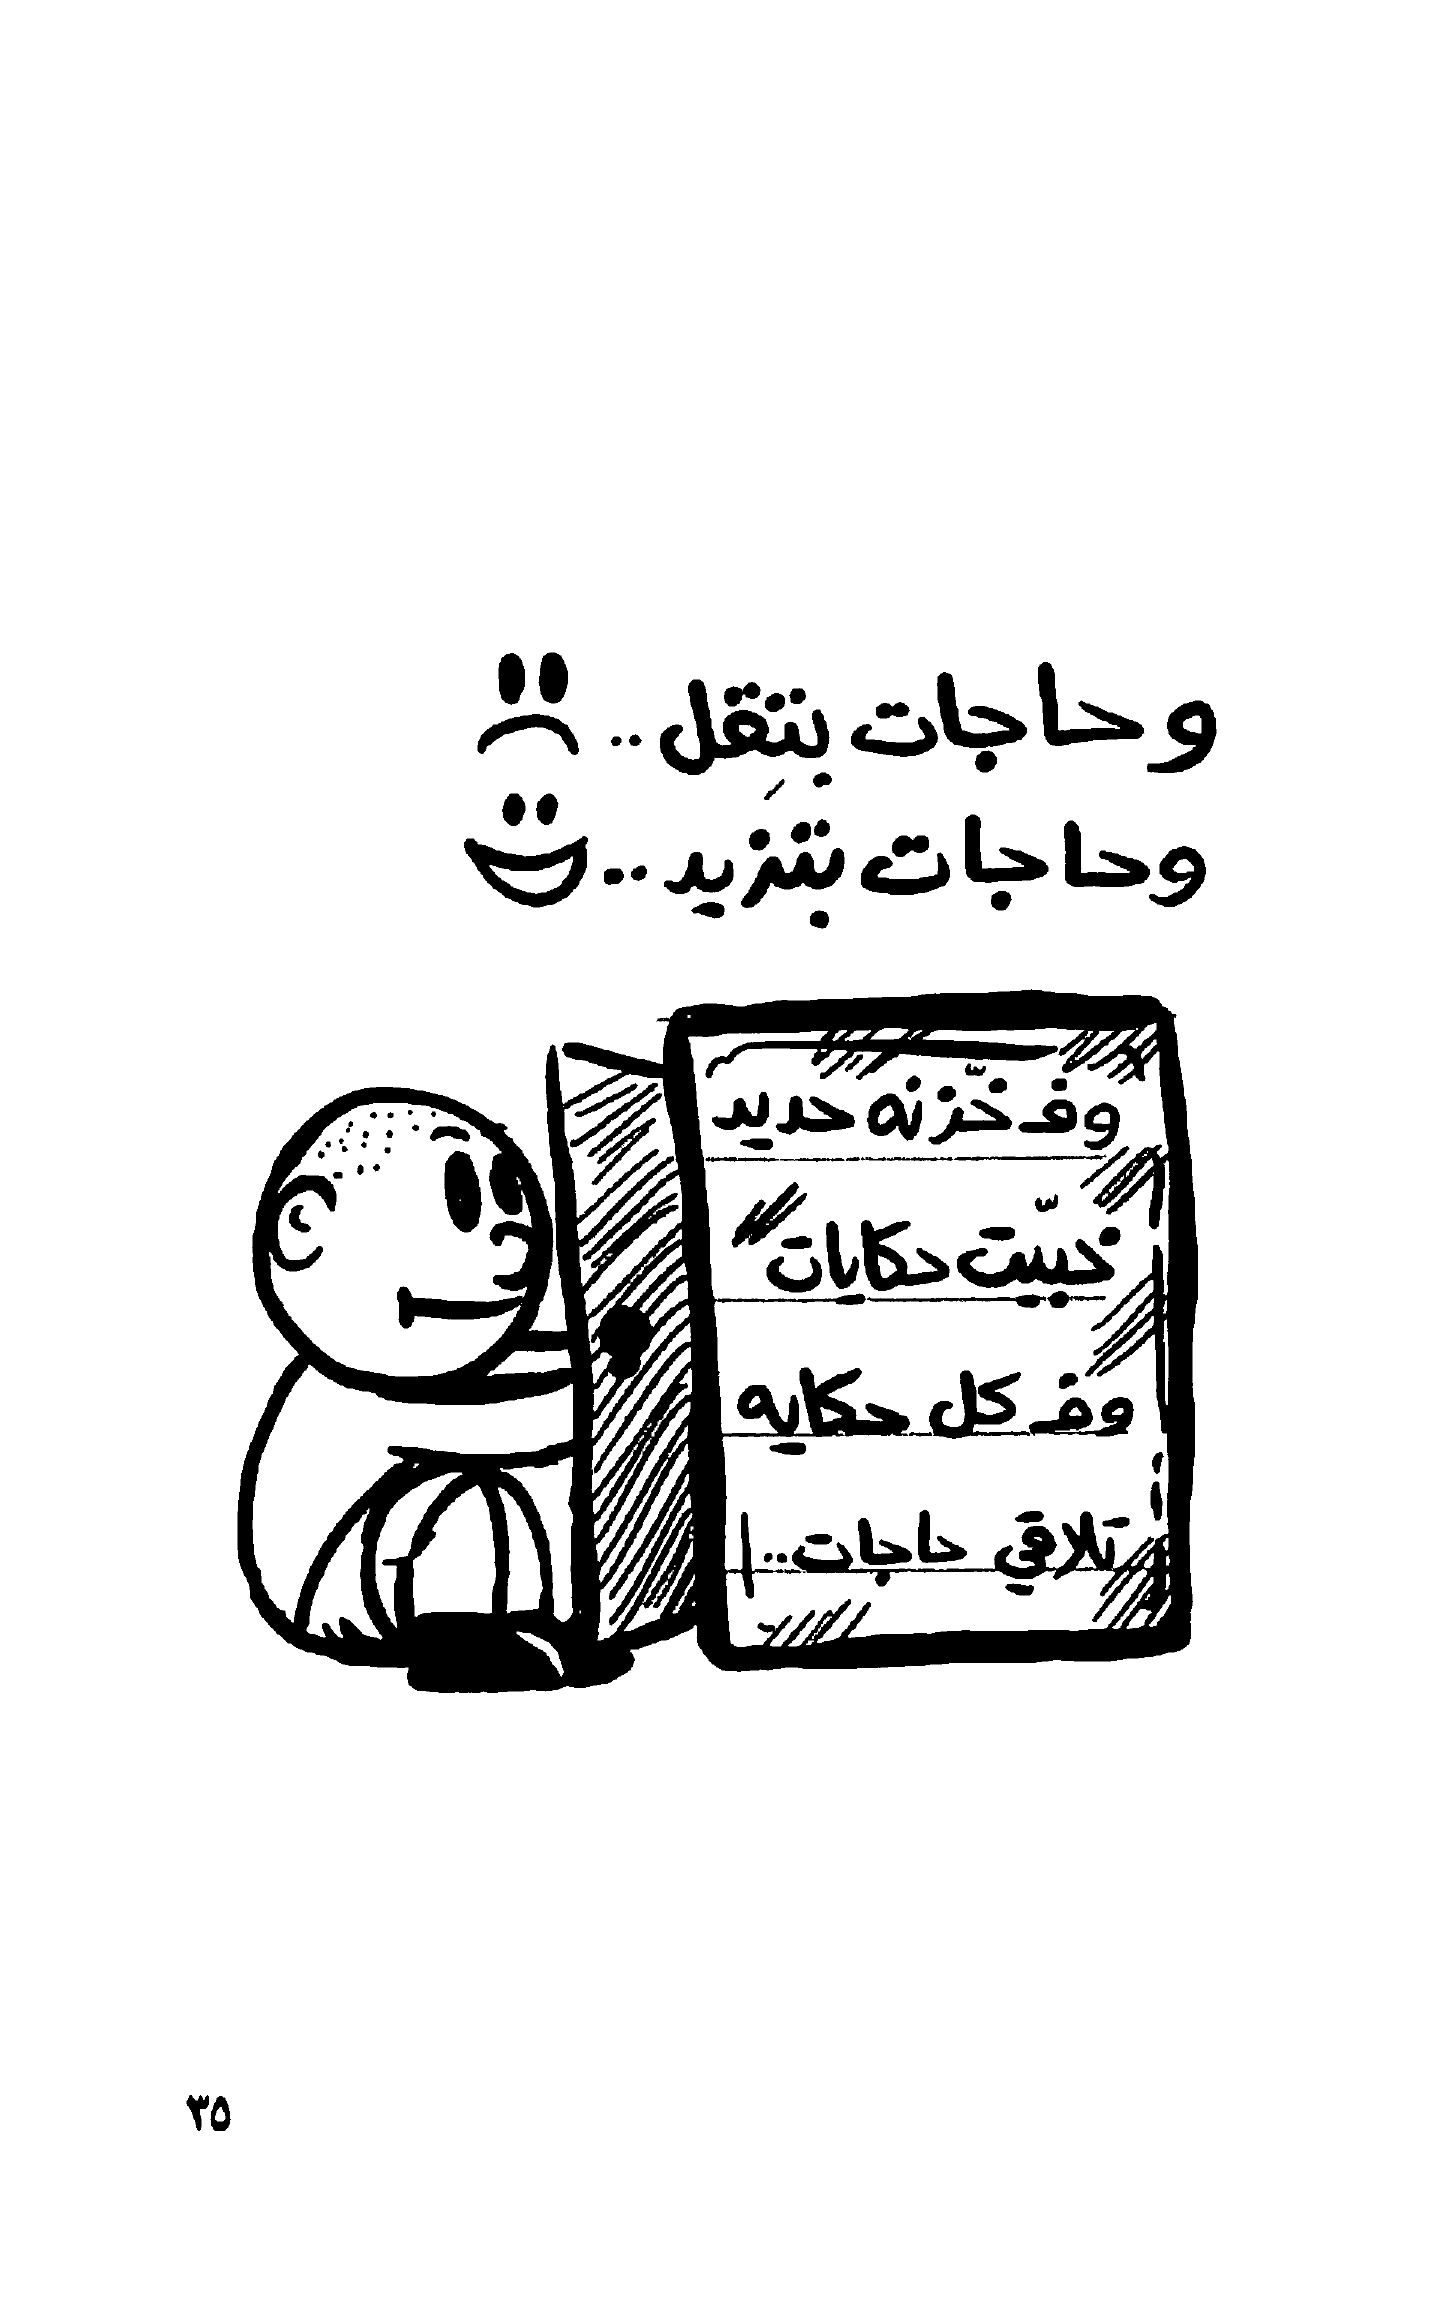 وحاجات بتقِل..
وحاجات بتزيد..
وف خّزنه حديد
خبيّت حكايات
وف كل حكايه
تلاقي حاجات..!
٣٥